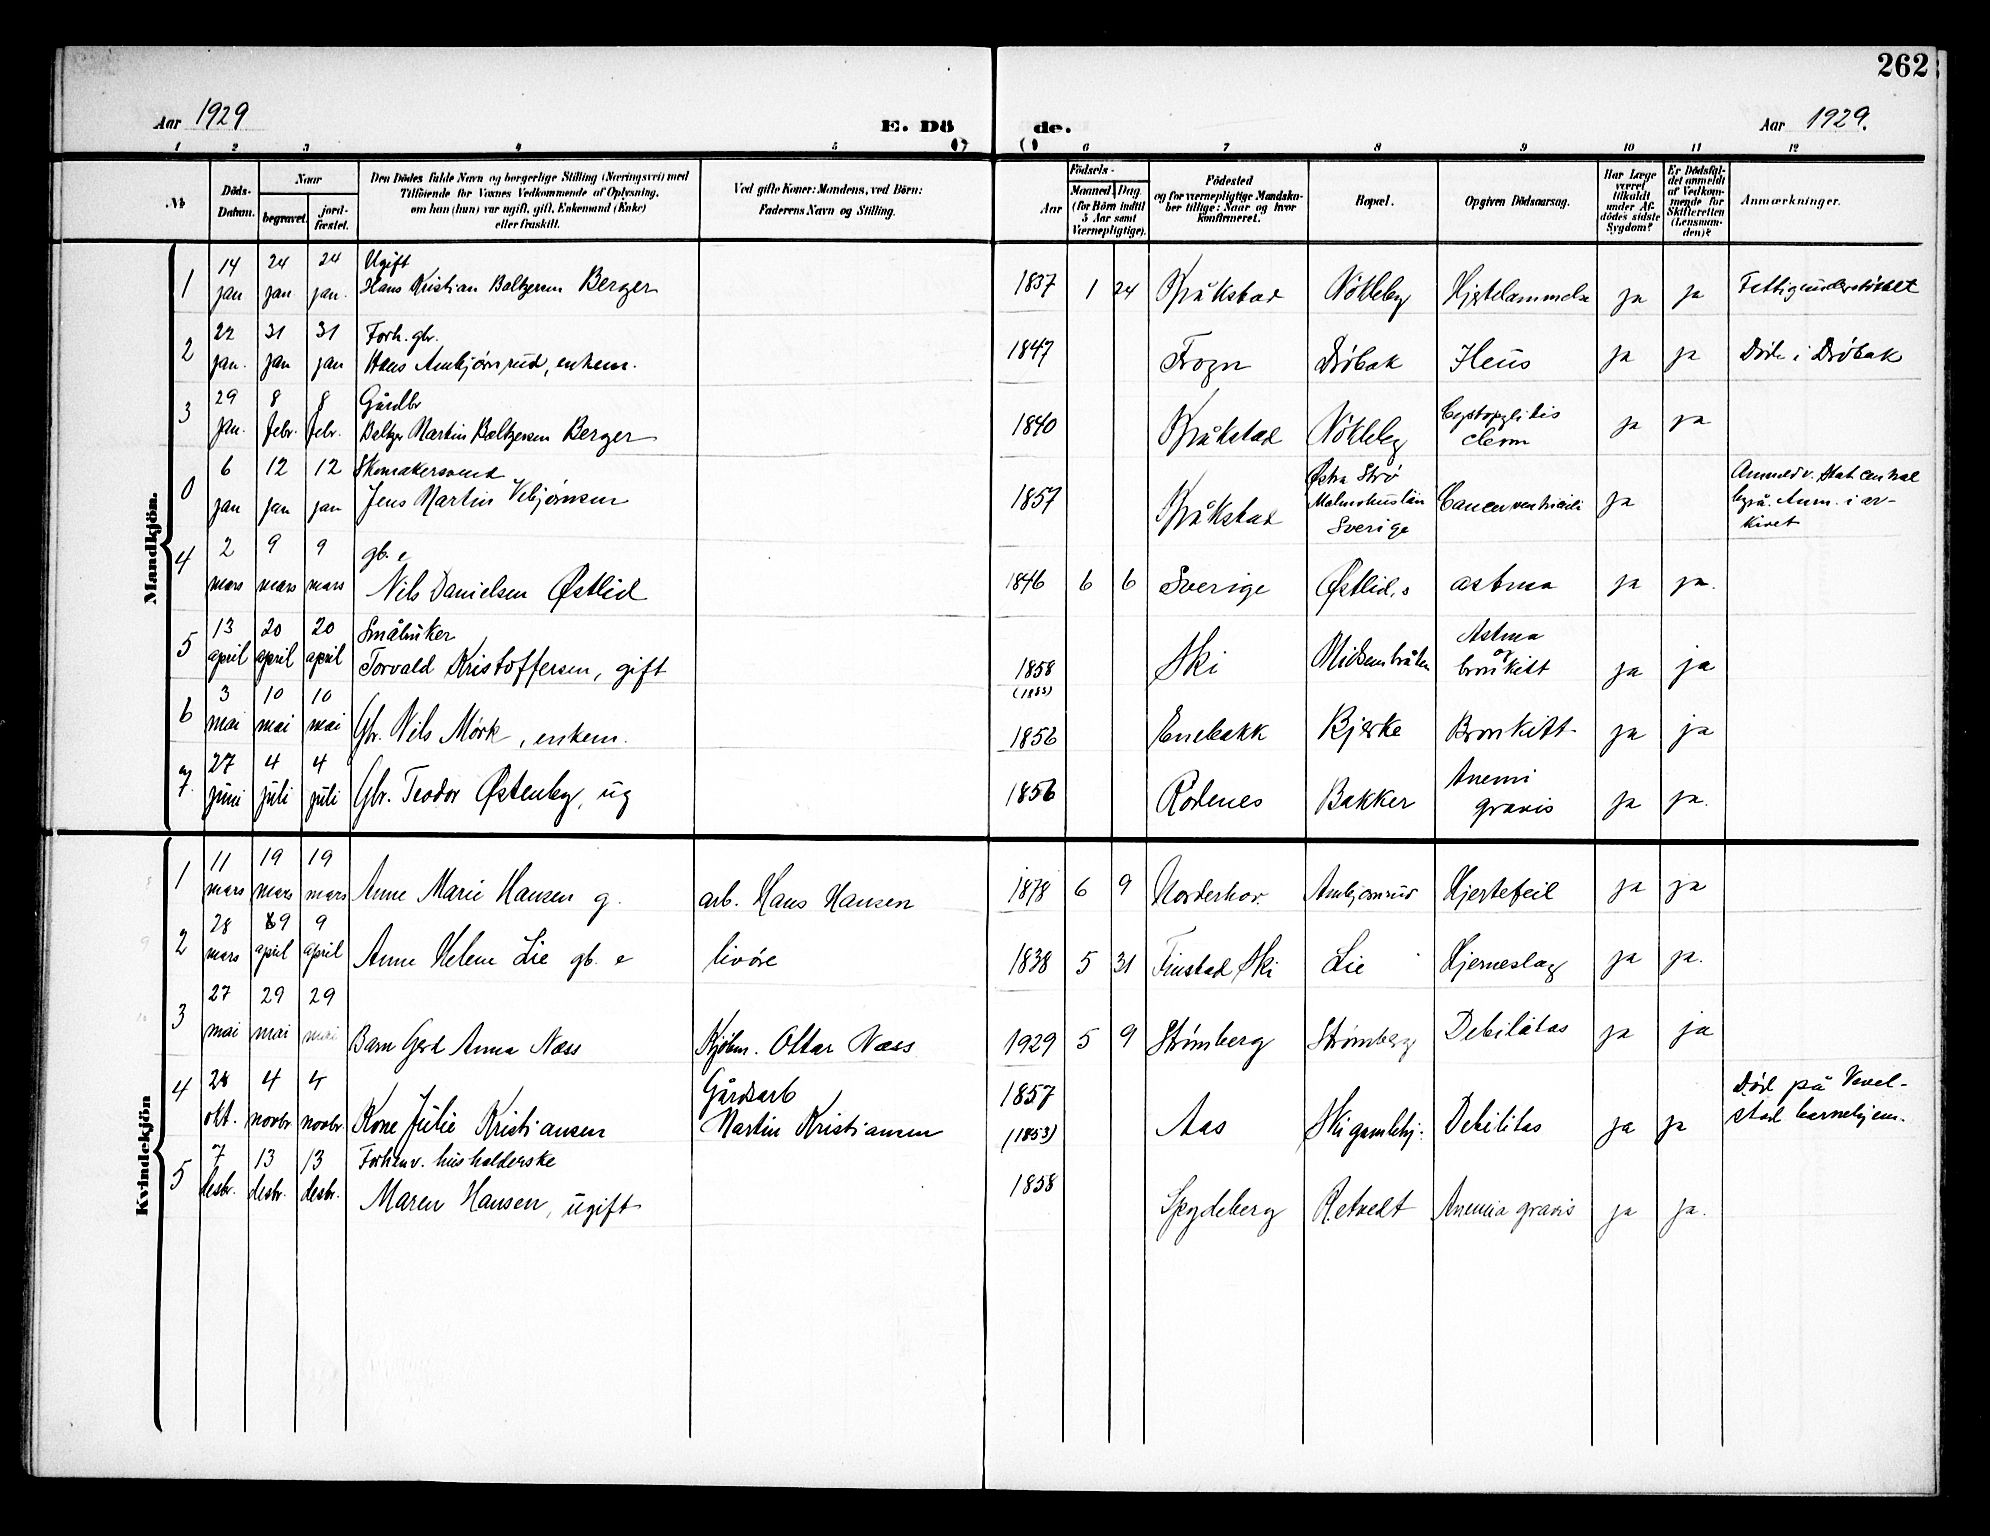 262
Aar 1929
E. Dö
de.
Aar 1929.
1 2 3 4 5 6 7 8 9 10 11 12
No
Döds-
Datum.
Naar
begravet.
jord-
fæstet.
Den Dödes fulde Navn og borgerlige Stilling (Næringsvei) med
Tilföiende for Voxnes Vedkommende af Oplysning.
om han (hun) var ugift, gift, Enkemand (Enke)
eller fraskilt.
Ved gifte Koner: Mandens, ved Börn:
Faderens Navn og Stilling.
Födsels-
Aar
Maaned. Dag.
(for Börn indtil
5 Aar samt
Værnepligtige).
Födested
og for værnepligtige Mandska-
ber tillige: Naar og hvor
konfirmeret.
Bopæl.
Opgiven Dödsaarsag.
Har Læge
været
tilkaldt
under Af-
dödes sidste
Sygdom?
Er Dödsfal-
det anmeldt
af Vedkom-
mende for
Skifteretten
(Lensman-
den)?
Anmærkninger.
Mandkjön.
1 14 jan 24 jan 24 jan. Ugift
Hans Kristian Baltzersen Berger 1837 1 24 Kråkstad Nökleby Hjertelammelse ja ja Fattigunderstöttet
2 22 jan. 31 jan 31 jan Forh. gbr.
Hans Ambjörnsrud, enkem. 1847 Frogn Dröbak Ileus ja ja Död i Dröbak
3 29 jan. 8 febr. 8 febr. Gårdbr
Baltzer Martin Baltzersen Berger 1840 Kråkstad Nökleby ja ja
0 6 jan 12 jan 12 jan Skomakersvend
Jens Martin Vebjørnsen 1857 Kråkstad Östra Strö
Malmöhuslän
Sverige Cancer ventriculi ja Anmeld v. Stat. central
byrå. Anm. i ar-
kivet
4 2 mars 9 mars 9 mars gb. e
Nils Danielsen Østlid 1846 6 6 Sverige Østlid, s astma ja ja.
5 13 april 20 april 20 april Småbruker
Torvald Kristoffersen, gift 1858 Ski Midsembråten Astma
og
bronkitt ja ja
6 3 mai 10 mai 10 mai Gbr. Nils Mörk, enkem. 1852 Enebakk Bjerke Bronkitt ja ja
7 27 juni 4 juli 4 juli Gbr. Teodor Østenby, ug 1856 Rödenes Bakker Anemi
gravis ja ja.
Kvindekjön
1 11 mars 19 mars 19 mars Anne Marie Hansen g. arb. Hans Hansen 1878 6 9 Norderhov. Ambjørnrud Hjertefeil ja ja
2 28 mars 9 april 9 april Anne Helene Lie gb. e livöre 1838 5 31 Finstad Ski Lie Hjerneslag ja ja.
3 27 mai 29 mai 29 mai Barn Gerd Anna Næss Kjöbm. Ottar Næss 1929 5 9 Strömberg Strömberg Debilitas ja ja
4 28 okt. 4 novbr 4 novbr. Kone Julie Kristiansen Gårdsarb
Martin Kristiansen 1857
(1853) Aas Ski gamlehj. Debilitas ja ja Död på Vevel-
stad barnehjem.
5 7 desbr. 13 desbr. 13 desbr. Forhenv. husholderske
Maren Hansen, ugift 1858 Spydeberg Retvedt Anemia gravis ja ja.